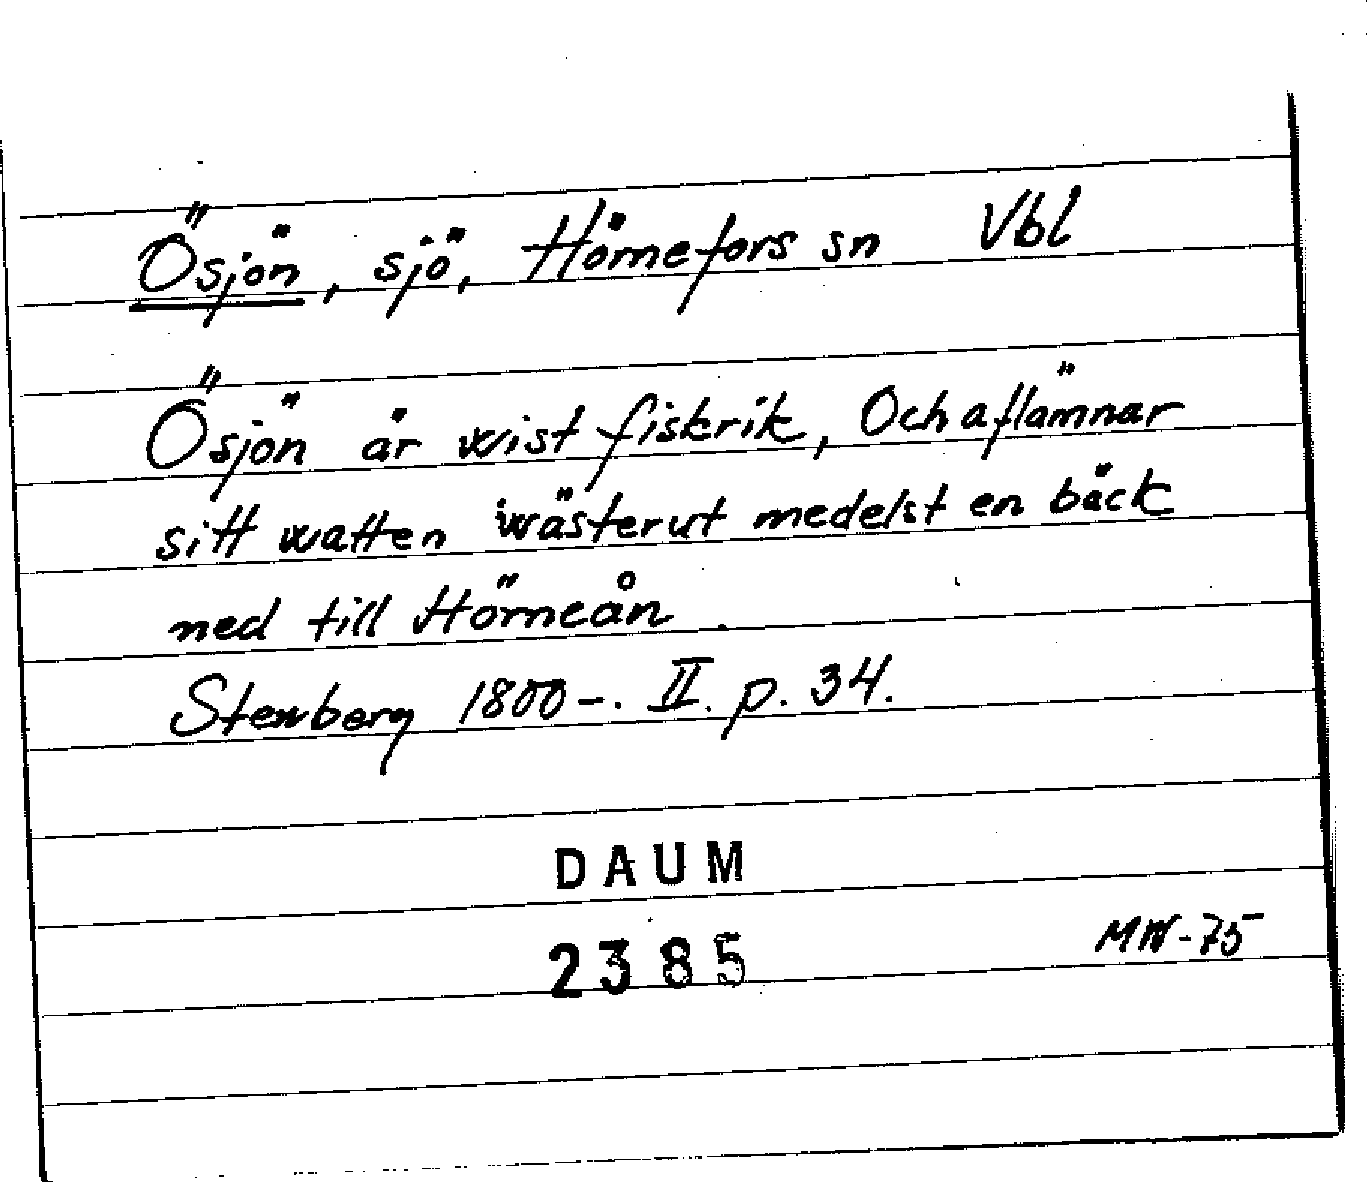 Ösjön, sjö, Hörnefors sn Vbl
Ösjön är wist fiskrik, Och aflämnar
sitt watten wästerut medelst en bäck
ned till Hörneån.
Stenberg 1800-. II. p. 34.
DAUM
2385
MW-75